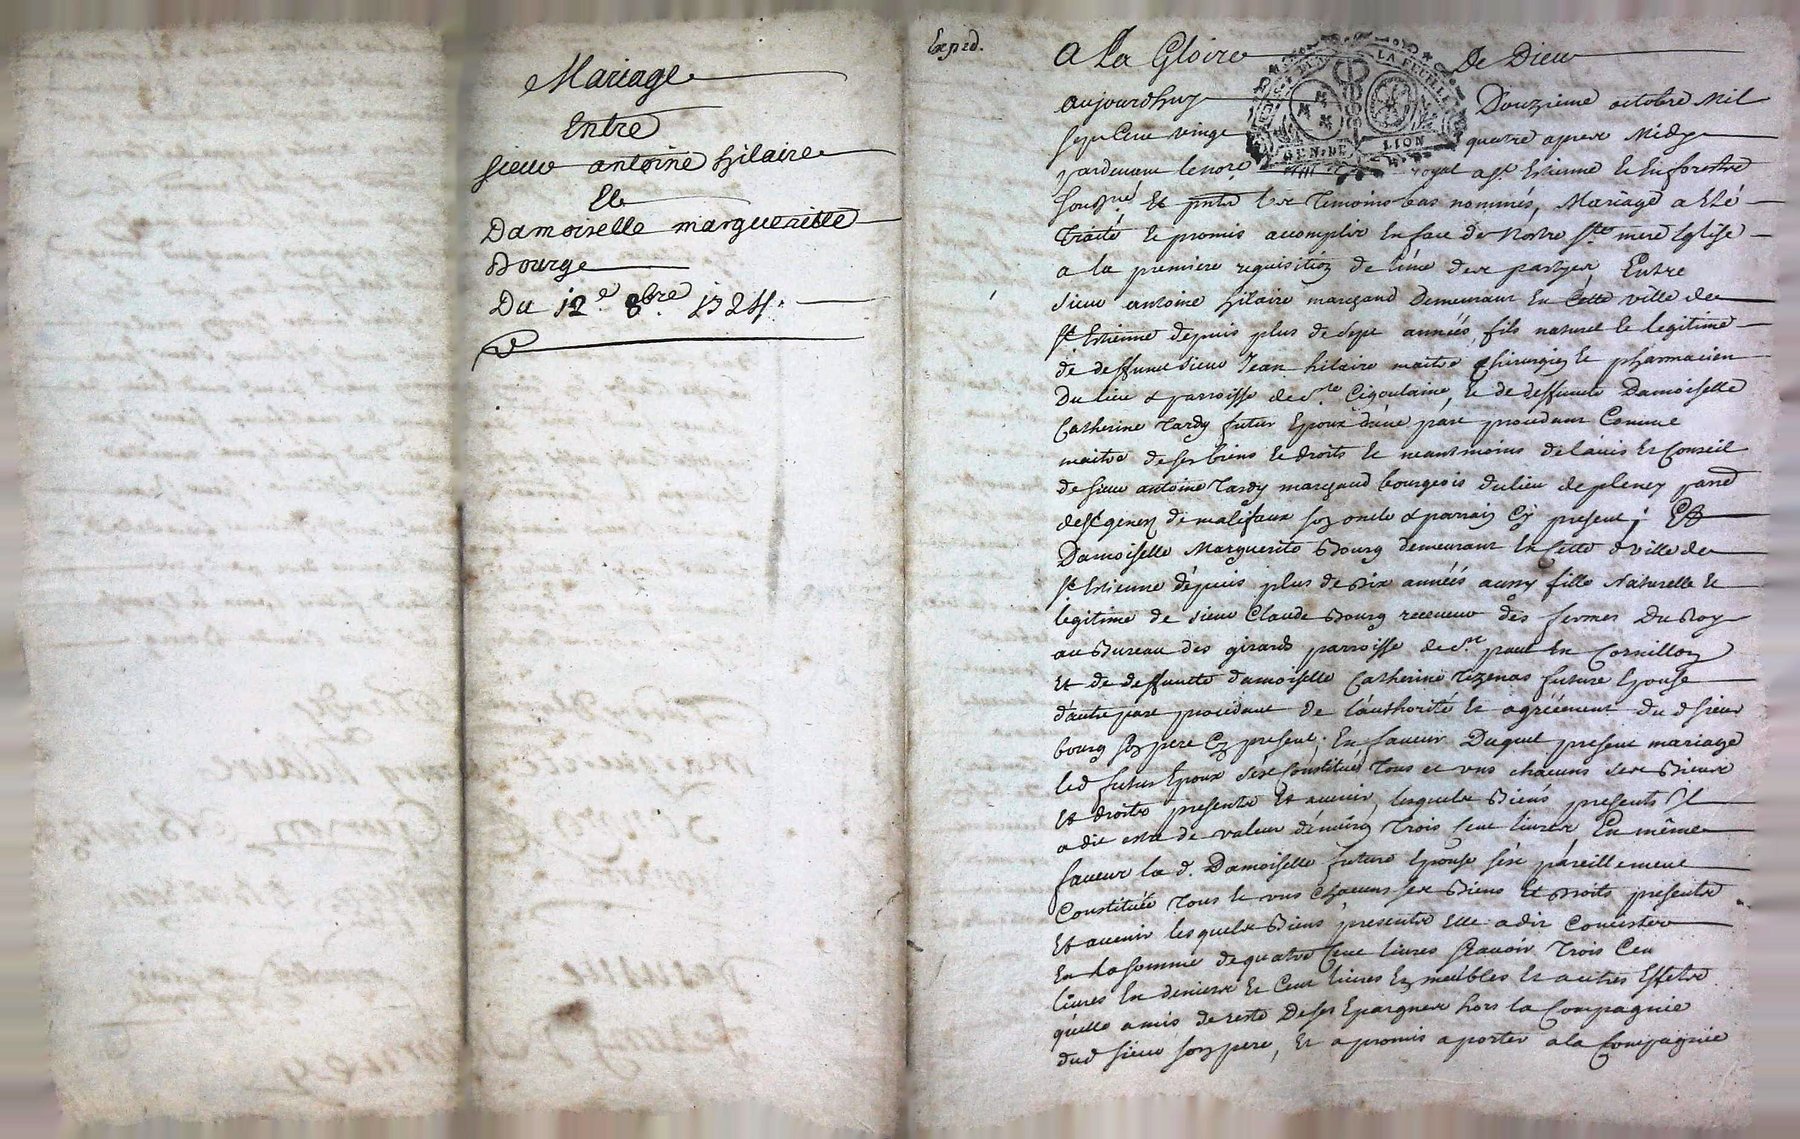 Mariage
Entre
sieur antoine hilaire
Et
Damoiselle margueritte
Bourg
Du 12e 8bre 1724.
Exped.
A La Gloire De Dieu
aujourdhuy Douzieme octobre Mil
sept Cent vingt quatre apres Midy
pardevant le nore royal a St Estienne En forestz
sousne Et pnts les Temoins bas nommés, Mariage a Eté
Traité et promis accomplir En face de Nostre Ste mere Eglise
a la premiere requisition de l'une des partyes Entre
sieur antoine hilaire marchand Demeurant En Cette ville de
St Estienne depuis plus de sept années, fils naturel et legitime
de deffunct sieur Jean hilaire maitre Chirurgien et pharmacien
Du lieu & parroisse de Ste Cigoulaine, et de deffuncte Damoiselle
Catherine Tardy futur Epoux d'une part procedant Comme
maitre de ses biens et droits et neantmoins de l'avis et Conseil
de sieur antoine Tardy marchand bourgeois du lieu de pleney
de St genez de malifaux son oncle & parrain Cy present; Et
Damoiselle Marguerite Bourg demeurant En Cette ville de
St Estienne depuis plus de Dix années aussy fille Naturelle et
legitime de sieur Claude Bourg receveur des fermes Du Roy
au Bureau des girards parroisse de St paul En Cornillon
Et de deffuncte damoiselle Catherine Tezenas future Epouse
d'autre part procedant de l'authorité et agréement dud sieur
bourg son pere Cy present; En faveur Duquel present mariage
led futur Epoux s'est Constitué Tous et uns chacuns ses Biens
Et droits presents Et avenir, lesquels Biens presents Il
a dit estre de valeur d'environ Trois Cent livres En même
faveur la d. Damoiselle future Epouse s'est pareillement
Constituée Tous et uns Chacuns ses Biens Et Droits presents
Et avenir lesquels Biens presents Elle a dit Consister
En la somme de quatre Cent livres sçavoir Trois Cent
livres En deniers Et Cent livres En meubles Et autres Effets
quelle a mis de reste De ses Epargnes hors la Compagnie
dud sieur son pere, Et a promis aporter a la Compagnie